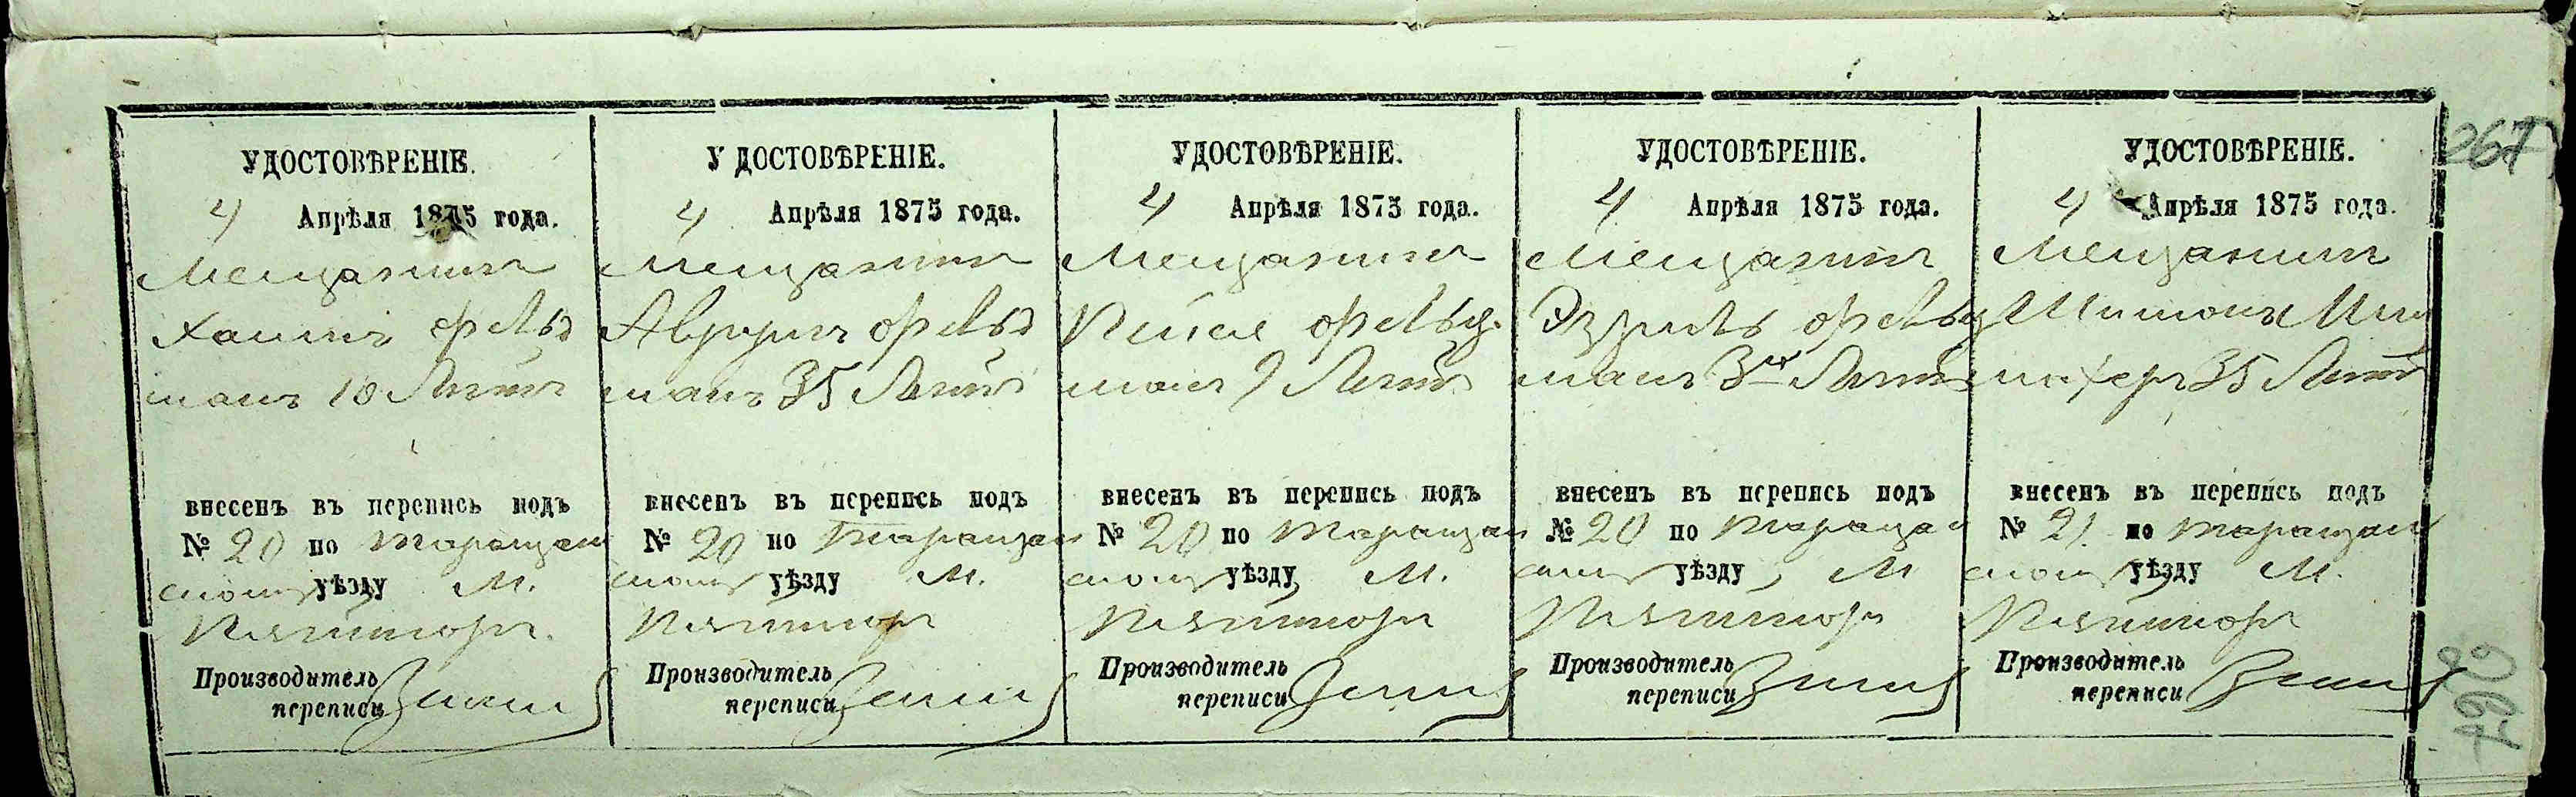 267
УДОСТОВѢРЕНІЕ.
4 Апрѣля 1875 года.
Мещанинъ
Хаимъ Фельд
манъ 10 Летъ
внесенъ въ перепись подъ
№ 20 по Таращан
скому уѣзду М.
Пятигоры.
Производитель
переписи
У ДОСТОВѢРЕНІЕ.
4 Апрѣля 1875 года.
Мещанинъ
Аврумъ Фельд
манъ 35 Летъ
внесенъ въ перепись подъ
№ 20 по Таращан
скому уѣзду М.
Пятигоры
Производитель
переписи
УДОСТОВѢРЕНІЕ.
4 Апрѣля 1875 года.
Мещанинъ
Пейсе Фельд
манъ 9 Летъ
внесенъ въ перепись подъ
№ 20 по Таращан
скому уѣзду М.
Пятигоры
Производитель
переписи
УДОСТОВѢРЕНІЕ.
4 Апрѣля 1875 года.
Мещанинъ
Фельд
манъ 3хъ Летъ
внесенъ въ перепись подъ
№ 20 по Таращан
скому уѣзду М
Пятигоры
Производитель
переписи
УДОСТОВѢРЕНІЕ.
4 Апрѣля 1875 года.
Мещанинъ
35 Летъ
внесенъ въ перепись подъ
№ 21. по Таращан
скому уѣзду М.
Пятигоры
Производитель
переписи
267